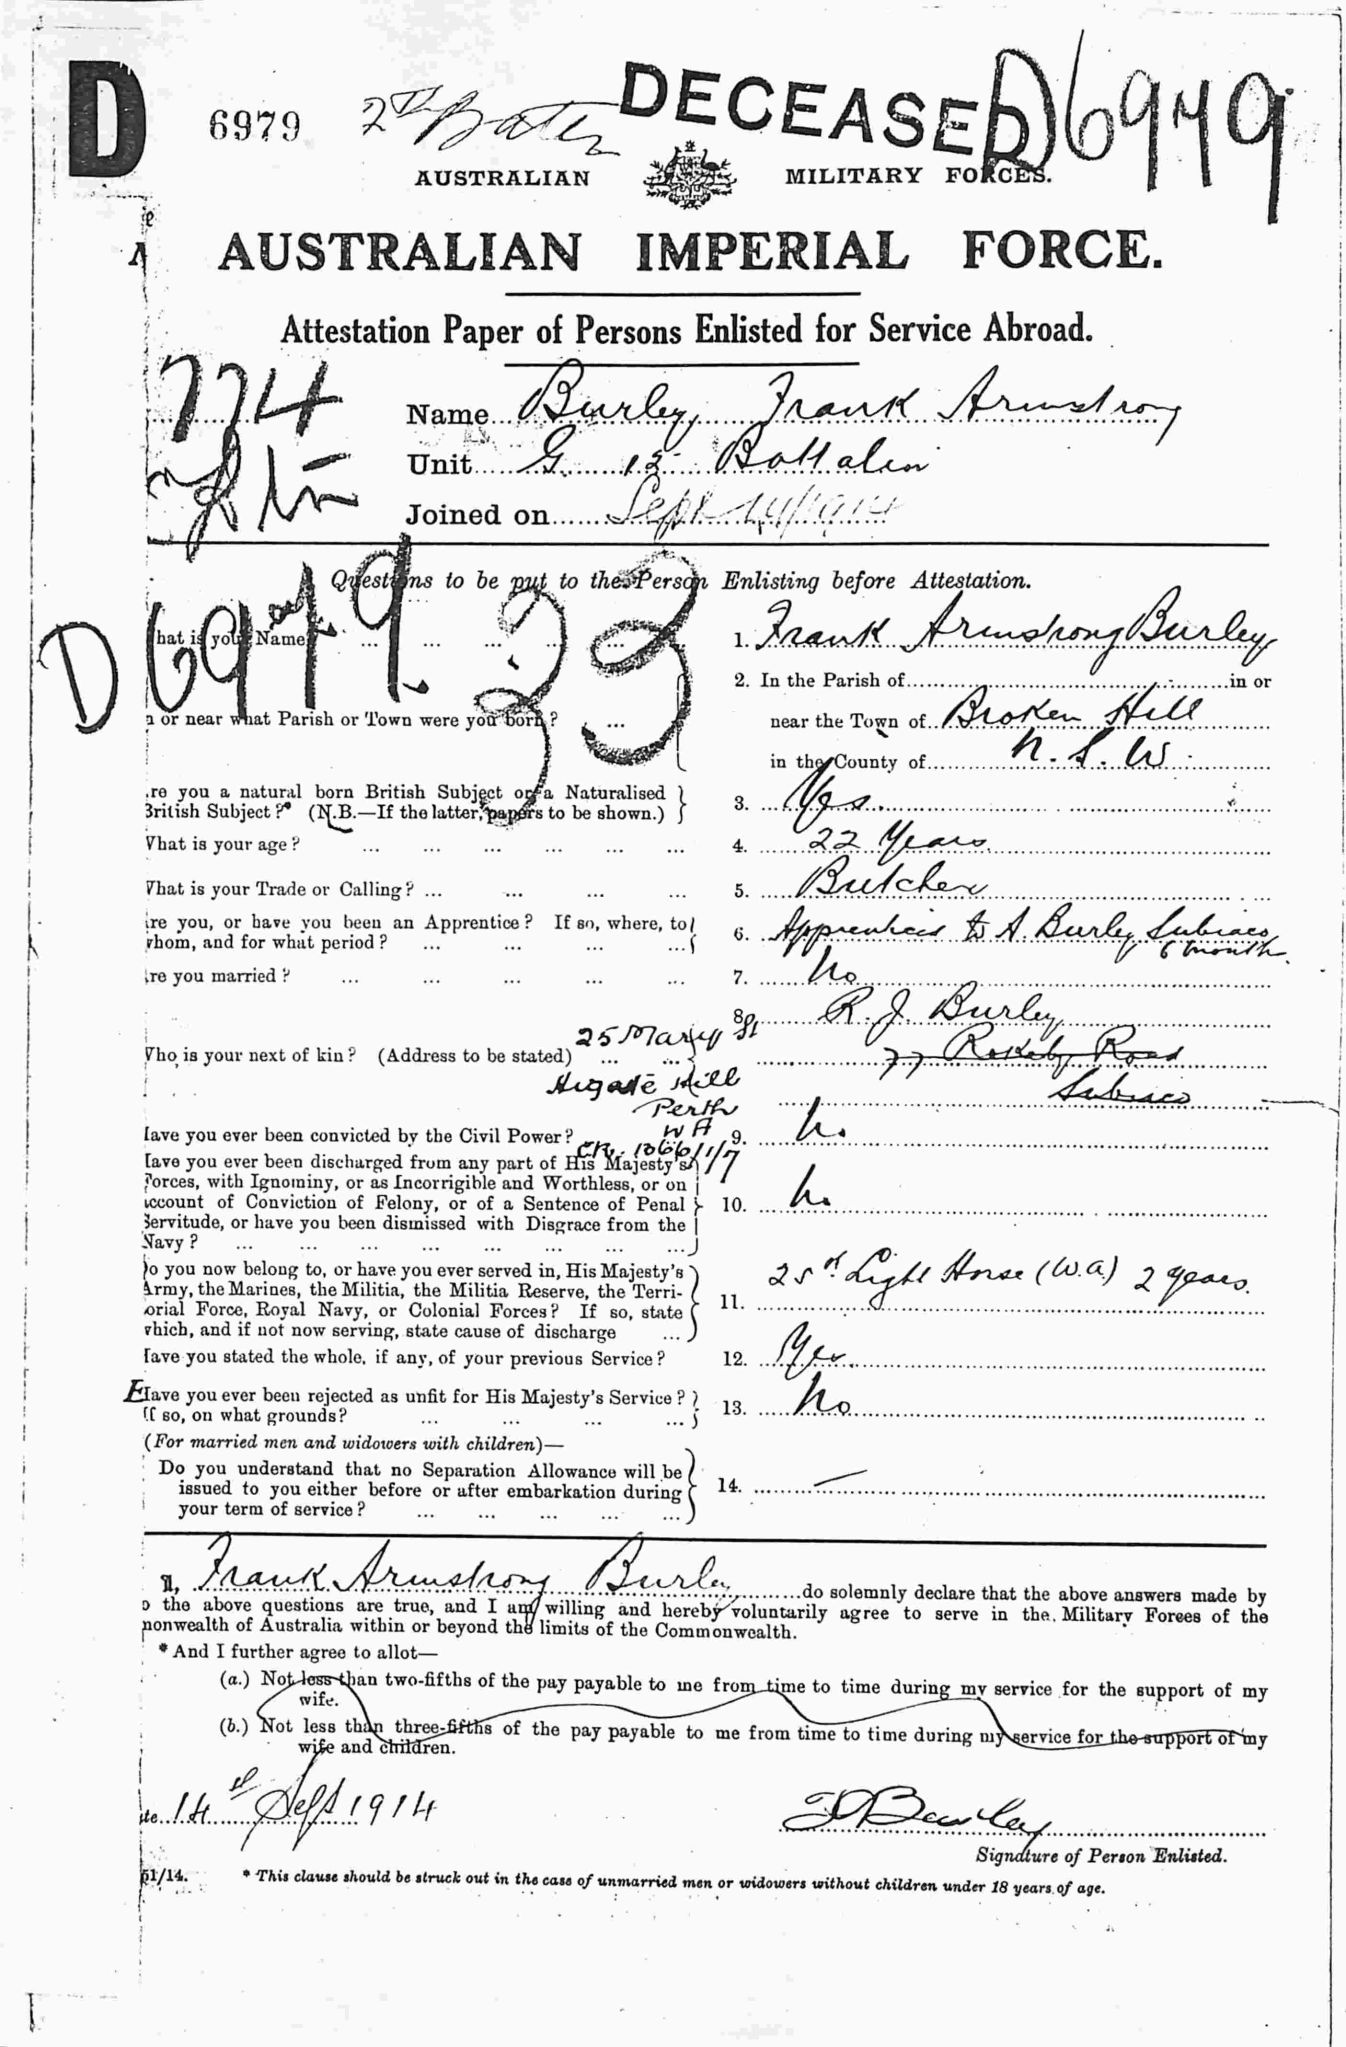 D
6979
DECEASED
D6979
AUSTRALIAN MILITARY FORCES.
AUSTRALIAN IMPERIAL FORCE.
Attestation Paper of Persons Enlisted for Service Abroad.
774
Name Burley, Frank Armstrong
Unit G. 12 Battalion
Joined on Sept 14/1914
Questions to be put to the Person Enlisting before Attestation.
D6979
33
hat is your Name? ... ... ... ... ...
1. Frank Armstrong Burley
2. In the Parish of in or
n or near what Parish or Town were you born? ...
near the Town of Broken Hill
in the County of N. S. W
re you a natural born British Subject or a Naturalised
British Subject?* (N.B.—If the latter, papers to be shown.)
3. Yes.
What is your age? ... ... ... ... ... ...
4. 22 Years
What is your Trade or Calling? ... ... ... ...
5. Butcher
re you, or have you been an Apprentice? If so, where, to
whom, and for what period? ... ... ... ...
6. Apprenticed to A. Burley Subiaco
6 month.
re you married? ... ... ... ... ...
7. No
8. R. J. Burley
25 Mary St
Who is your next of kin? (Address to be stated) ... ...
77 Rokeby Road
Higate Hill
Subiaco
Perth
W A
Have you ever been convicted by the Civil Power?
9. No
CR. 1066/1/7
Have you ever been discharged from any part of His Majesty's
Forces, with Ignominy, or as Incorrigible and Worthless, or on
account of Conviction of Felony, or of a Sentence of Penal
Servitude, or have you been dismissed with Disgrace from the
Navy? ... ... ... ... ... ... ... ...
10. No
Do you now belong to, or have you ever served in, His Majesty's
Army, the Marines, the Militia, the Militia Reserve, the Terri-
orial Force, Royal Navy, or Colonial Forces? If so, state
which, and if not now serving, state cause of discharge ...
11. 25th Light Horse (W.A.) 2 years.
Have you stated the whole, if any, of your previous Service?
12. Yes.
Have you ever been rejected as unfit for His Majesty's Service?
If so, on what grounds? ... ... ... ...
13. No
(For married men and widowers with children)—
Do you understand that no Separation Allowance will be
issued to you either before or after embarkation during
your term of service? ... ... ... ... ...
14. —
I, Frank Armstrong Burley do solemnly declare that the above answers made by
o the above questions are true, and I am willing and hereby voluntarily agree to serve in the Military Forces of the
monwealth of Australia within or beyond the limits of the Commonwealth.
* And I further agree to allot—
(a.) Not less than two-fifths of the pay payable to me from time to time during my service for the support of my
wife.
(b.) Not less than three-fifths of the pay payable to me from time to time during my service for the support of my
wife and children.
te 14th Sept 1914
F A Burley
Signature of Person Enlisted.
51/14.
* This clause should be struck out in the case of unmarried men or widowers without children under 18 years of age.